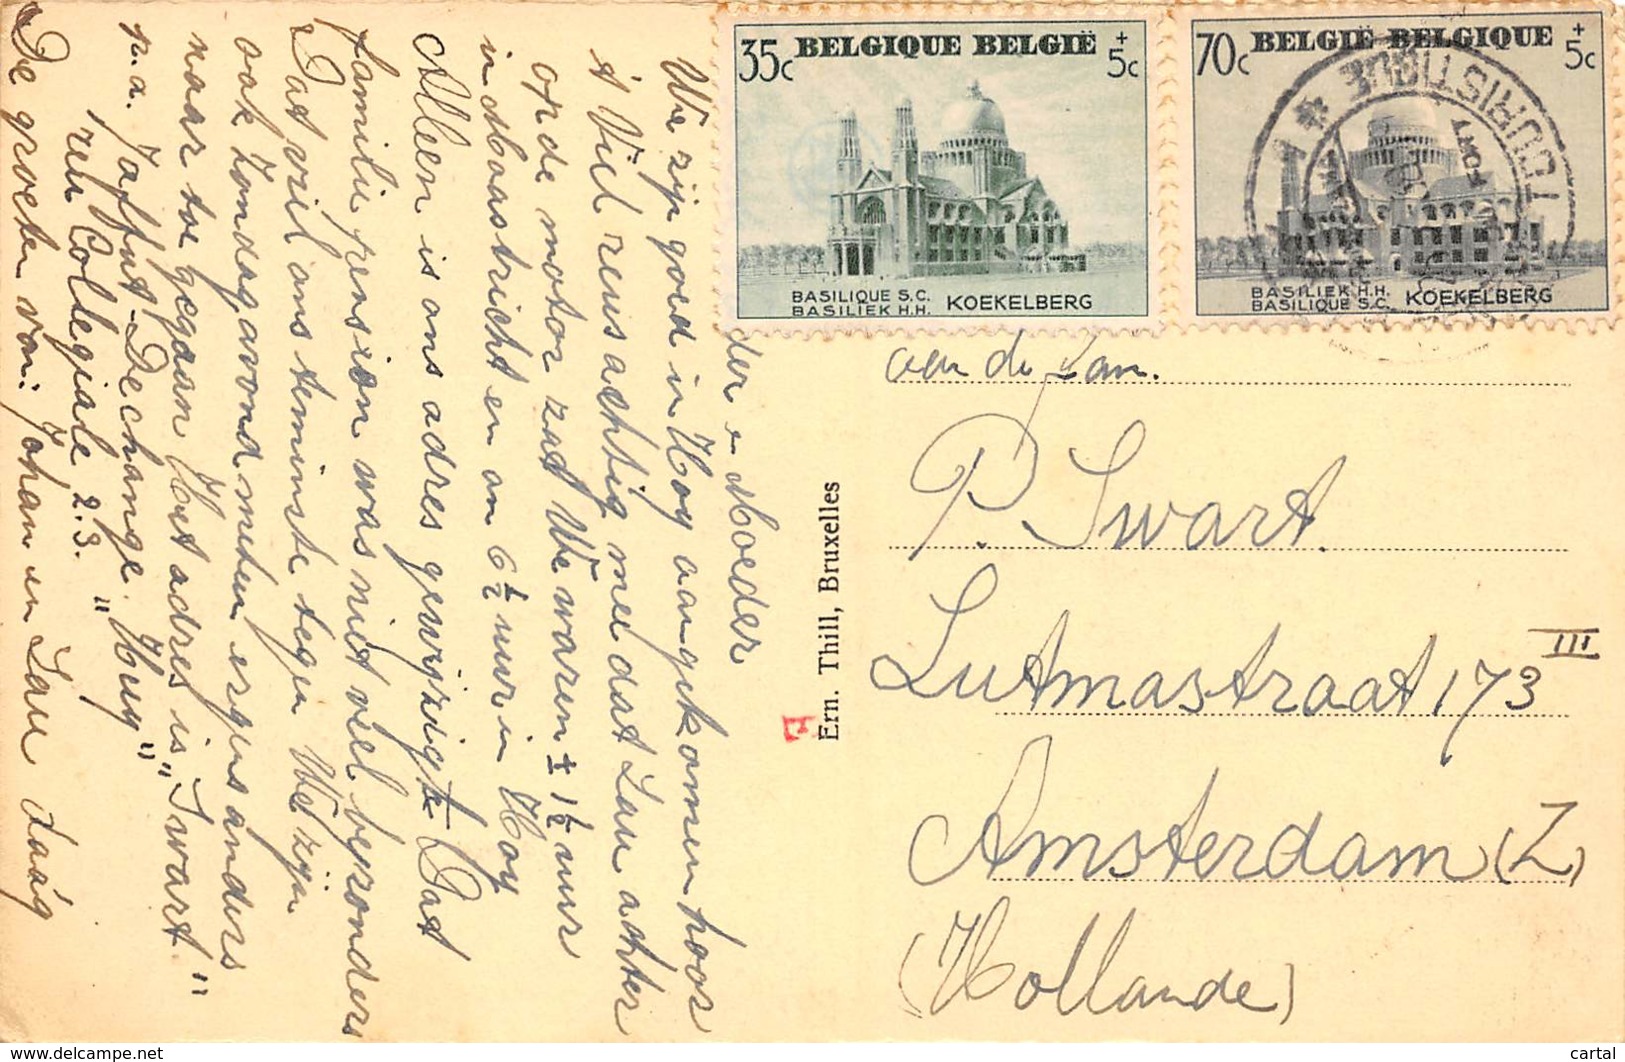 35c BELGIQUE BELGIË + 5c
BASILIQUE S.C.
BASILIEK H.H. KOEKELBERG
70c BELGIË BELGIQUE + 5c
BASILIEK H.H.
BASILIQUE S.C. KOEKELBERG
TOURISTIQUE
der en Moeder
We zijn goed in Hoy aangekomen hoor
't Viel reusachtig mee dat Lau achter
op de motor zat We waren ± 1½ uur
in Maastricht en om 6½ uur in Hoy
Alleen is ons adres gewijzigt Dat
familie pension was niet veel bezonders
Dat viel ons teminste tegen We zijn
ook Zondagavond meteen ergens anders
naar toe gegaan Het adres is "Swart"
p.a. Decharge. "Huy"
rue Collegiale 23.
De groeten van: Johan en Lau daág
Ern. Thill, Bruxelles
aan de Fam.
P. Swart.
Lutmastraat 173 III
Amsterdam (Z)
(Hollande)
https://www.delcampe.net
cartal